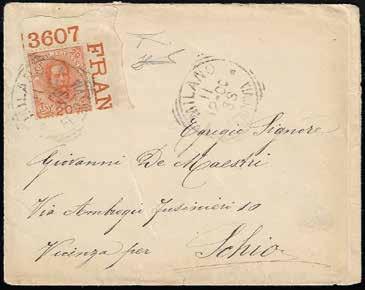 3607
FRAN
20
MILANO
11
Egregio Signore
Giovanni De Maestri
Via Ambrogio Fusinieri 10
Vicenza per Schio